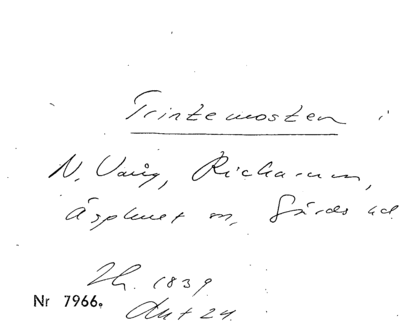 Trintemosten i
N. Vång, Richarum,
Äsphult m, Gärds hd.
Th. 1839
Akt 24.
Nr 7966.